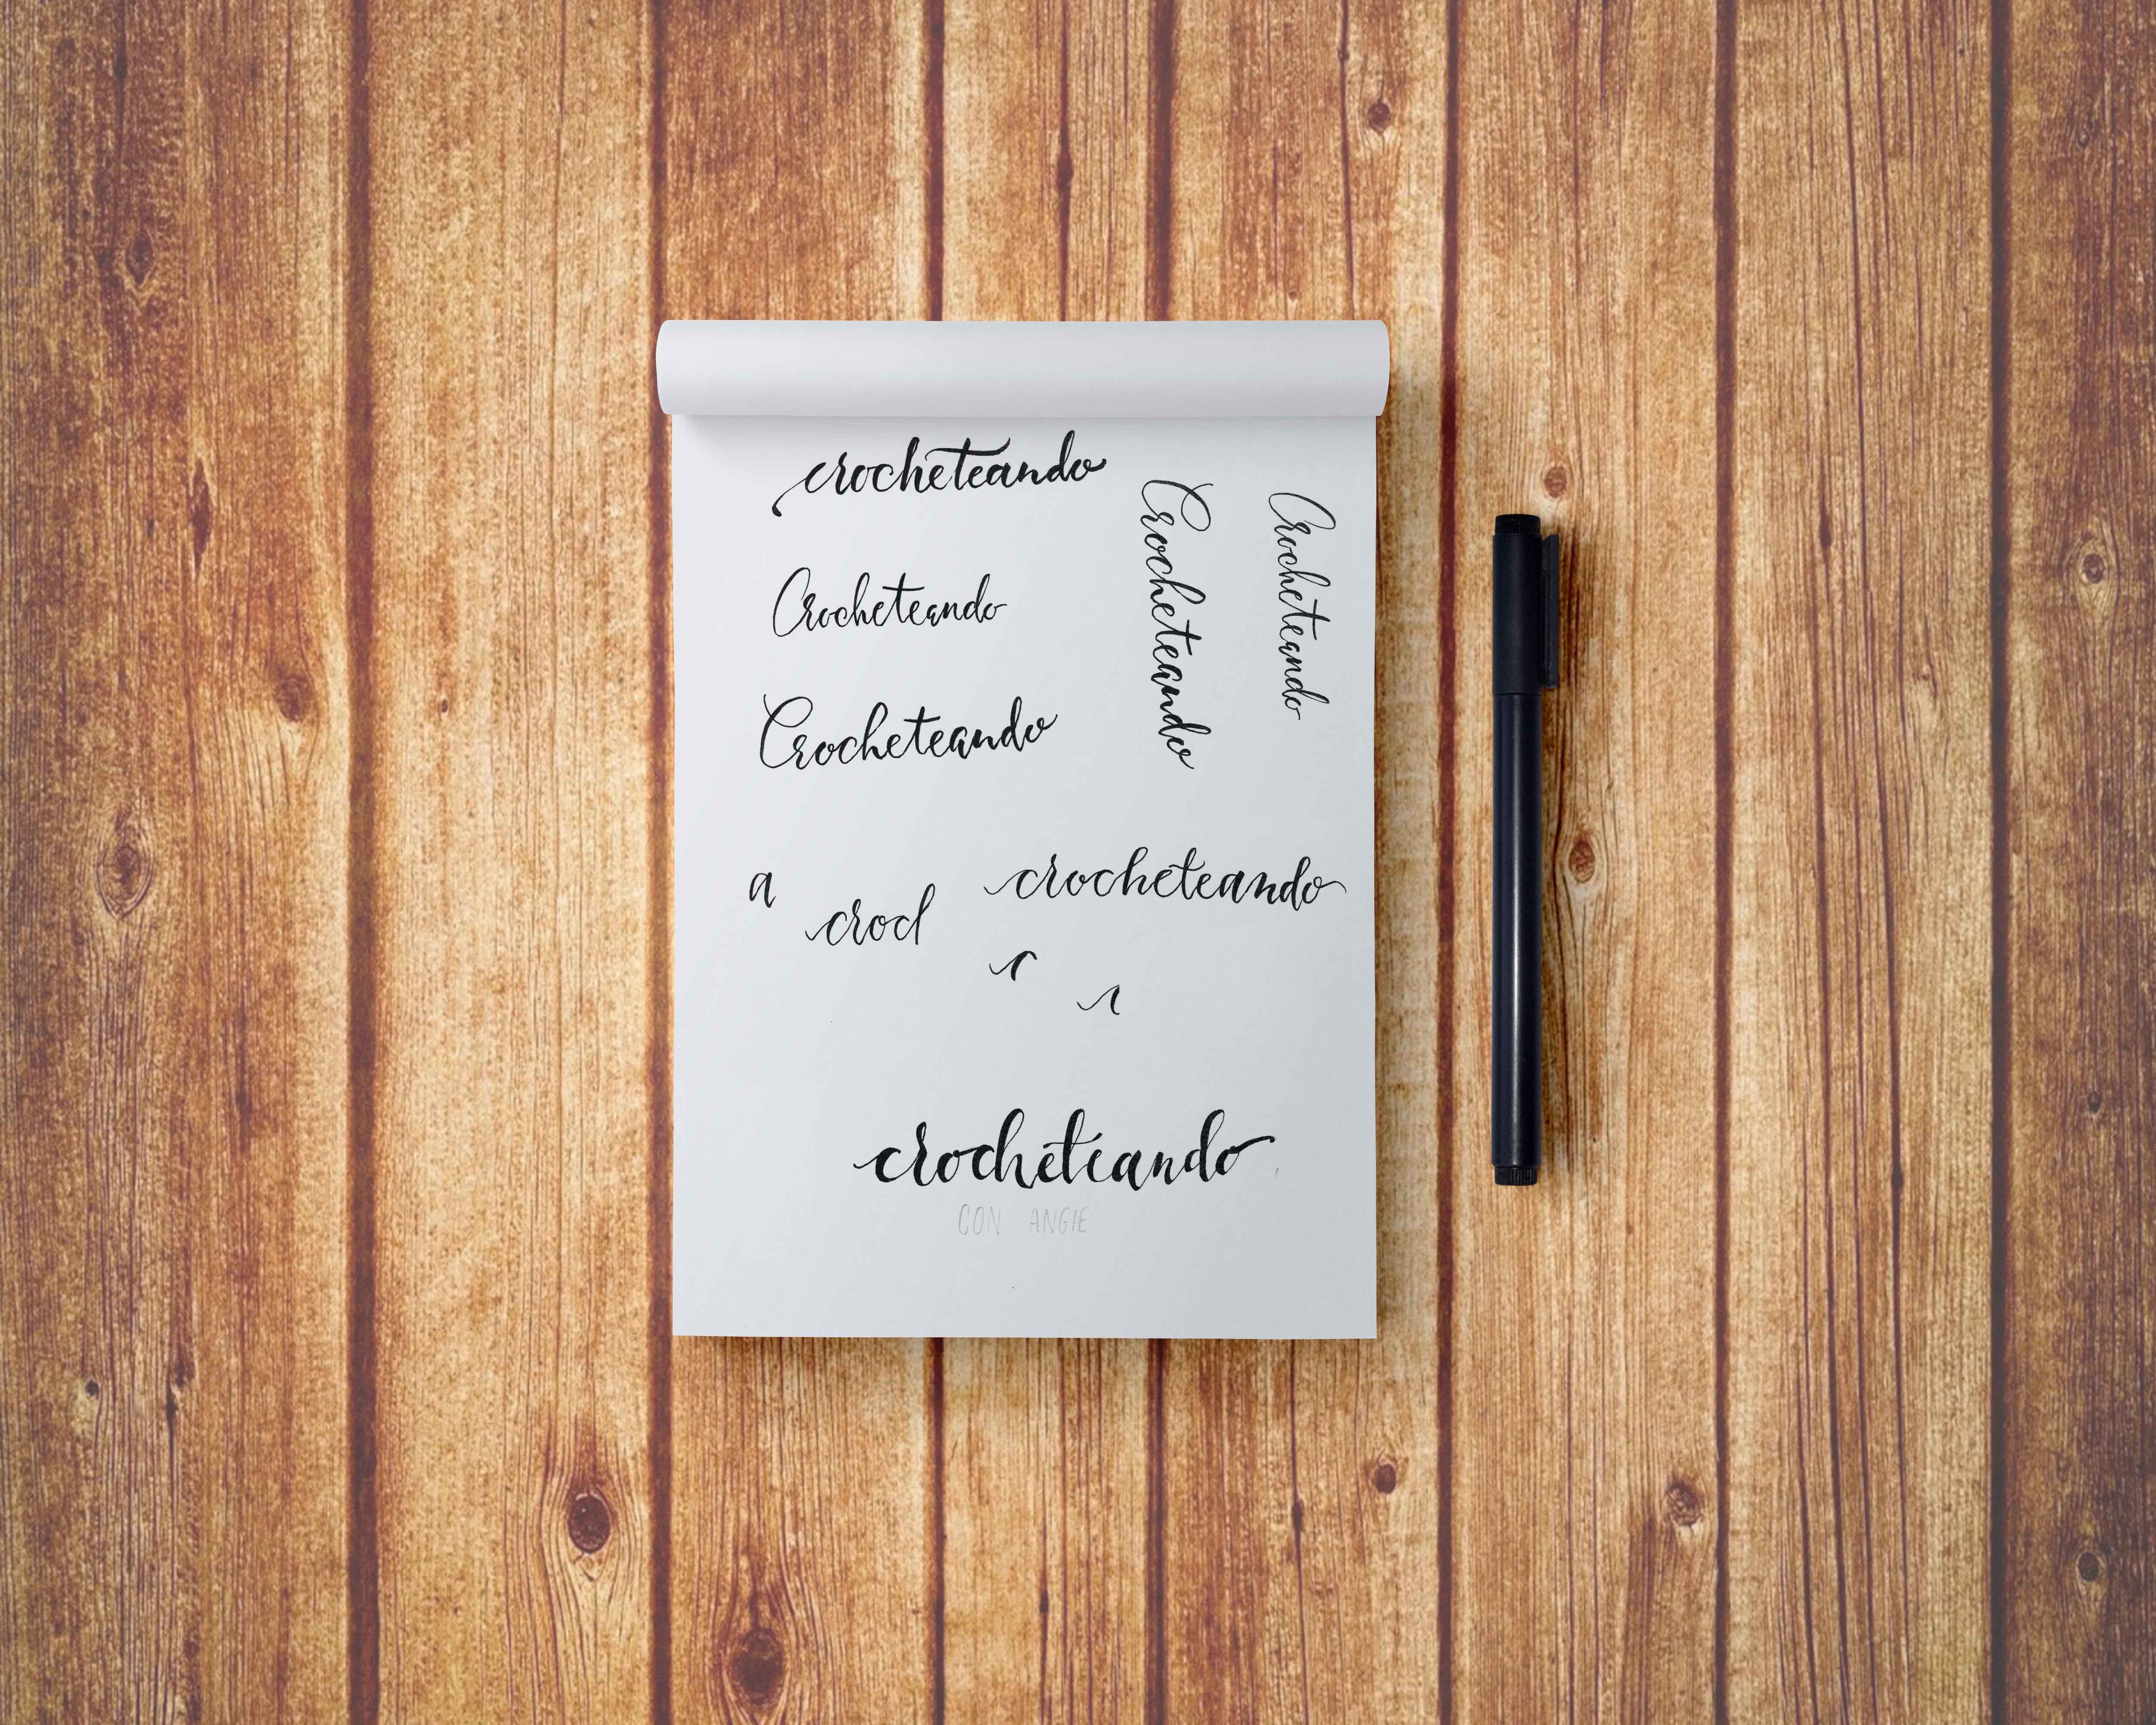 crocheteando
Crocheteando
Crocheteando
Crocheteando
Crocheteando
a
crocl
crocheteando
crocheteando
CON ANGIE